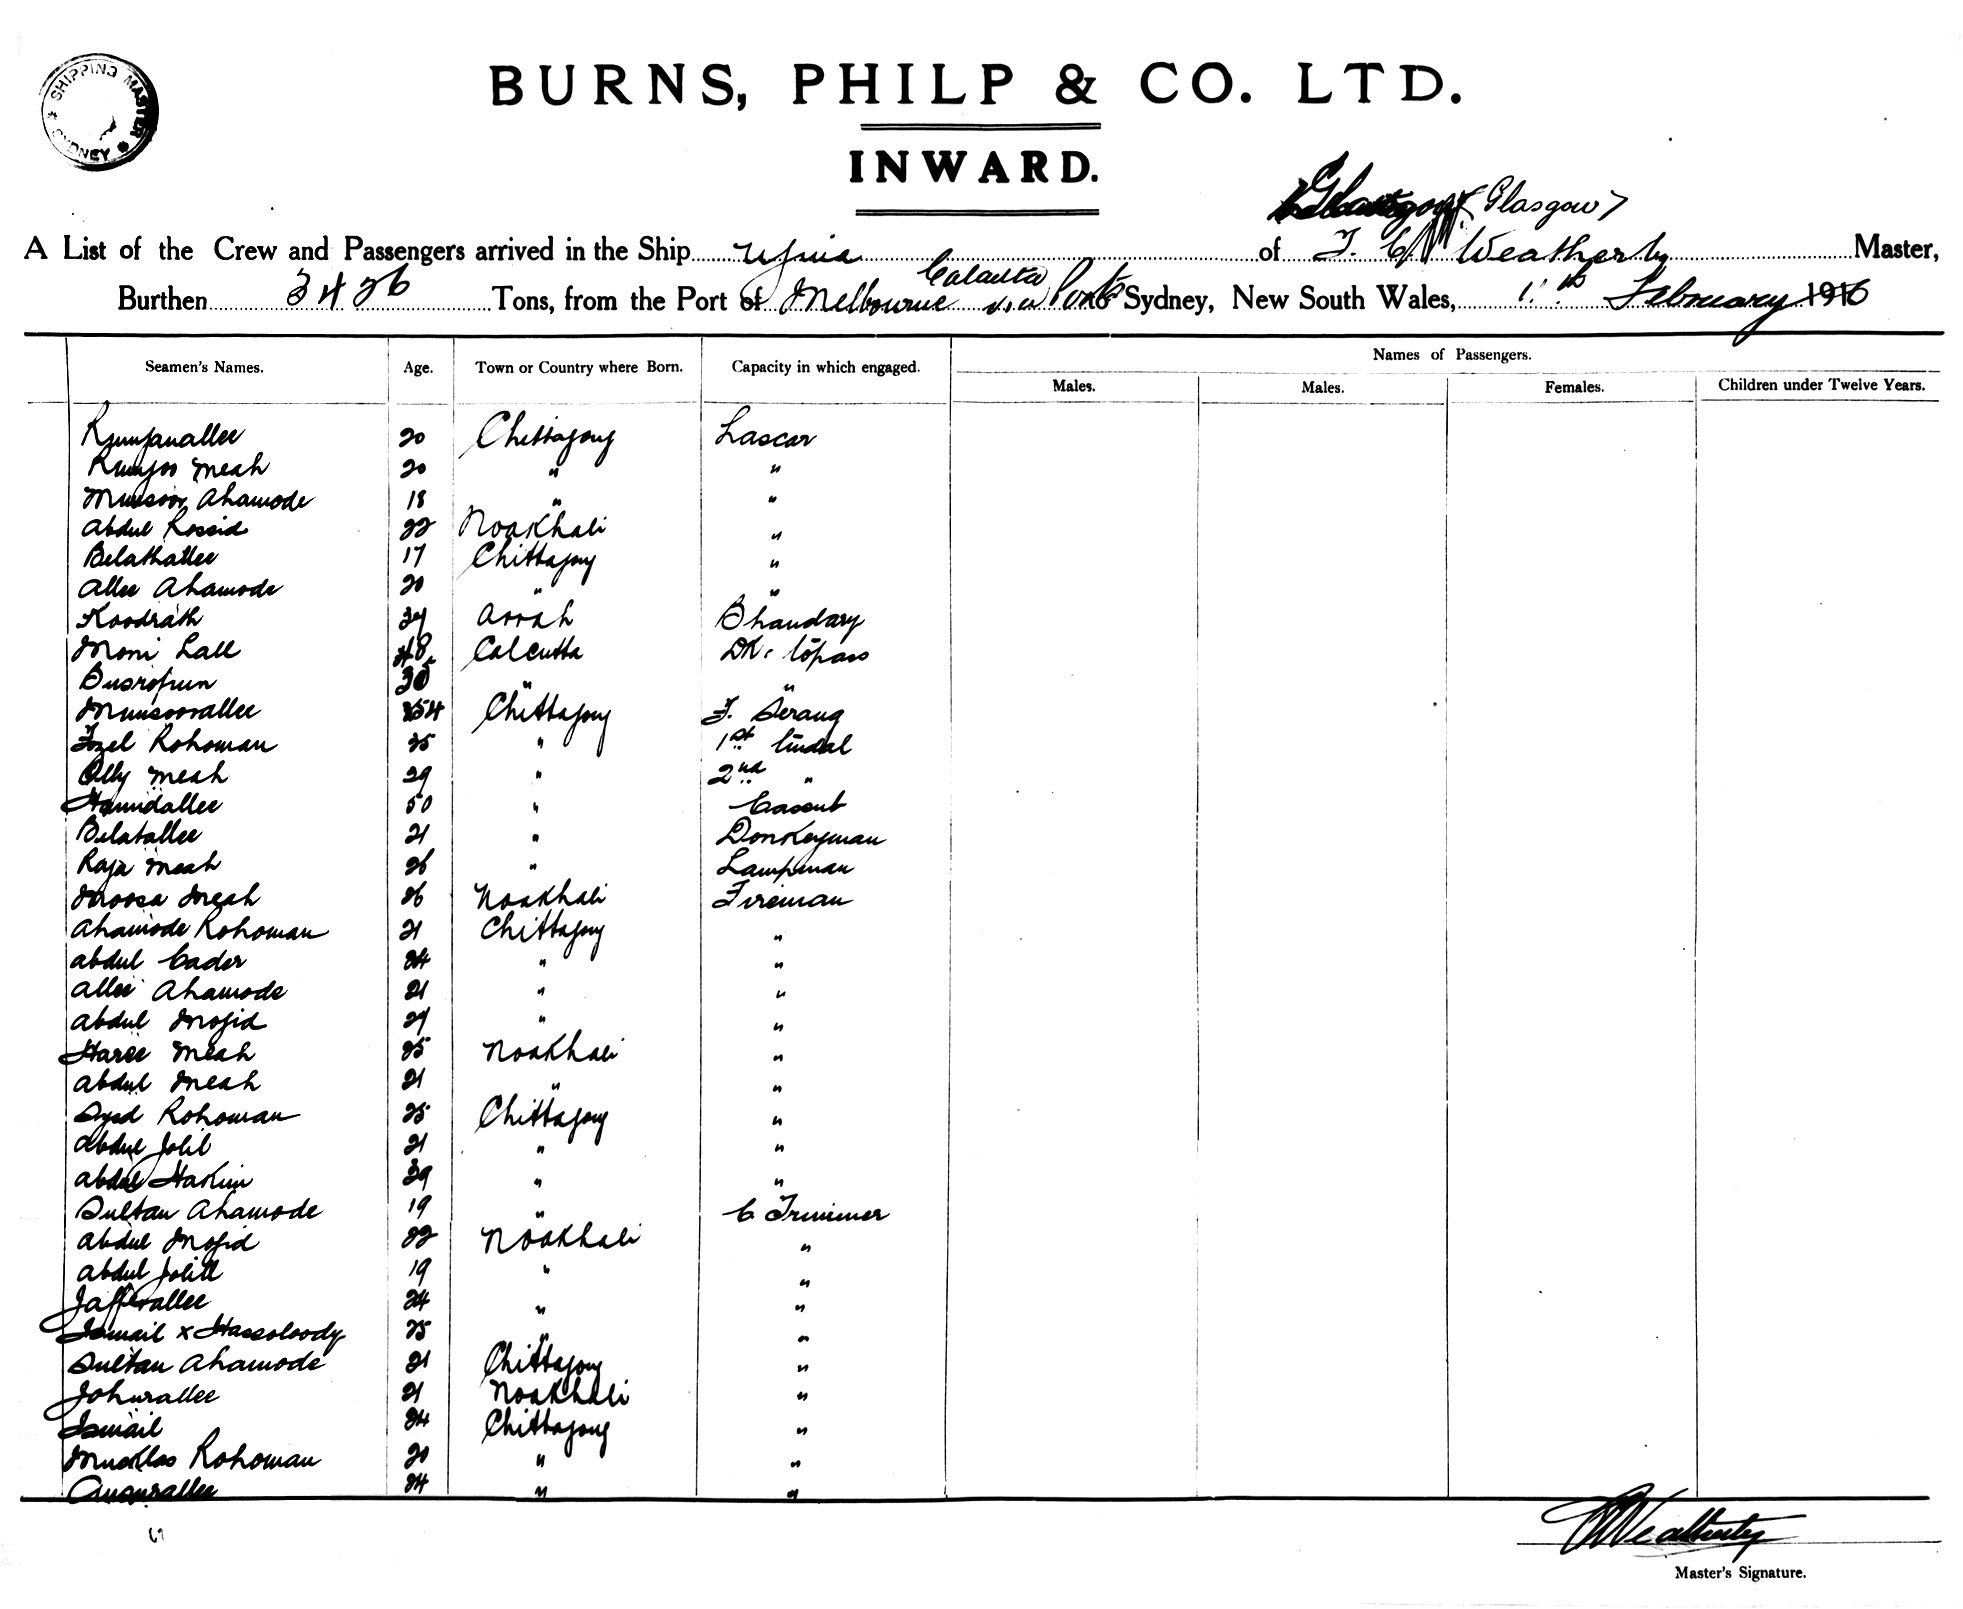 SHIPPING MASTER SYDNEY
BURNS, PHILP & CO. LTD.
INWARD.
Glasgow
A List of the Crew and Passengers arrived in the Ship Ujina of Weatherby Master,
Burthen 3426 Tons, from the Port of Melbourne Calcutta via Ports to Sydney, New South Wales, February 1916
Names of Passengers.
Seamen's Names. Age. Town or Country where Born. Capacity in which engaged. Males. Males. Females. Children under Twelve Years.
20 Chittagong Lascar
Meah 20 " "
Munsoor Ahamode 18 " "
Abdul Rossid 22 Noakhali "
Belathallee 17 Chittagong "
Allee Ahamode 20 " "
Koodrath Arrah Bhandary
Moni Lall 48 Calcutta Dk. topass
" "
Munsoorallee Chittagong F. Serang
Fozel Rohoman 25 " 1st tindal
Olly Meah 29 " 2nd "
Hamidallee 50 " Cassub
Belatallee 21 " Donkeyman
Raja Meah 26 " Lampman
Moosa Meah 26 Noakhali Fireman
Ahamode Rohoman 21 Chittagong "
Abdul Cader 24 " "
Allee Ahamode 21 " "
Abdul Mojid " "
Haree Meah 25 Noakhali "
Abdul Meah 21 " "
Syed Rohoman 25 Chittagong "
Abdul Jolil 21 " "
Abdul Hakim 39 " "
Sultan Ahamode 19 " C Trimmer
Abdul Mojid 22 Noakhali "
Abdul Jolill 19 " "
Jafferallee 24 " "
Ismail x Hassoloody 25 " "
Sultan Ahamode 21 Chittagong "
Johurallee 21 Noakhali "
Ismail 24 Chittagong "
Rohoman 20 " "
24 " "
Weatherby
Master's Signature.